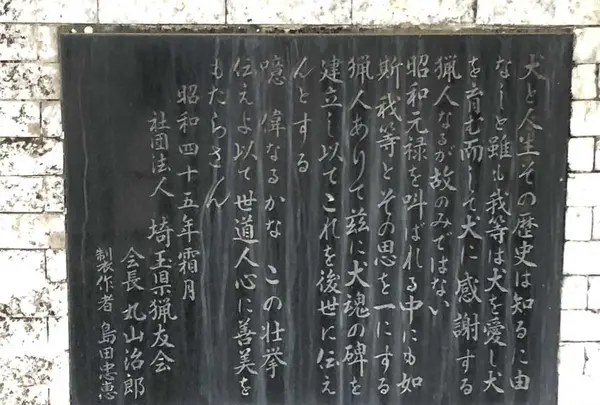 犬と人生その歴史は知るに由
なしと雖も我等は犬を愛し犬
を育む而して犬に感謝する
猟人なるが故のみではない
昭和元禄を叫ばれる中にも如
斯我等とその思を一にする
猟人ありて茲に犬魂の碑を
建立し以てこれを後世に伝え
んとする
噫偉なるかなこの壮挙
伝えよ以て世道人心に善美を
もたらさん
昭和四十五年霜月
社団法人 埼玉県猟友会
会長 丸山治郎
製作者 島田忠恵